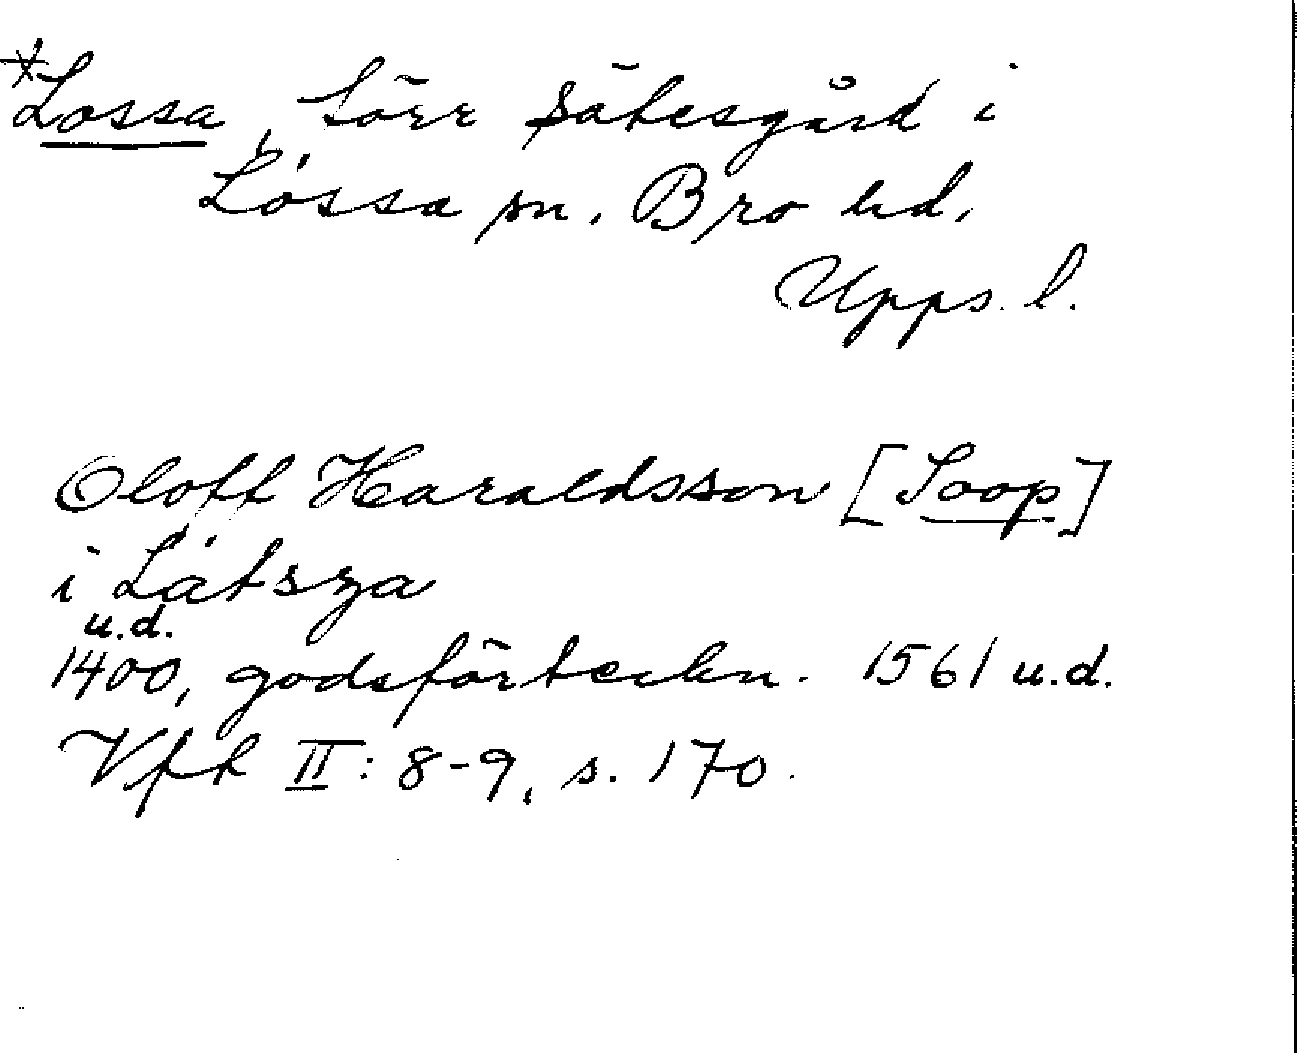 *Lossa, förr sätesgård i
Lossa sn. Bro hd.
Upps. l.
Oloff Haraldsson [Soop]
i Låtsza
u.d.
1400, godsförteckn. 1561 u.d.
Vfk II: 8-9, s. 170.